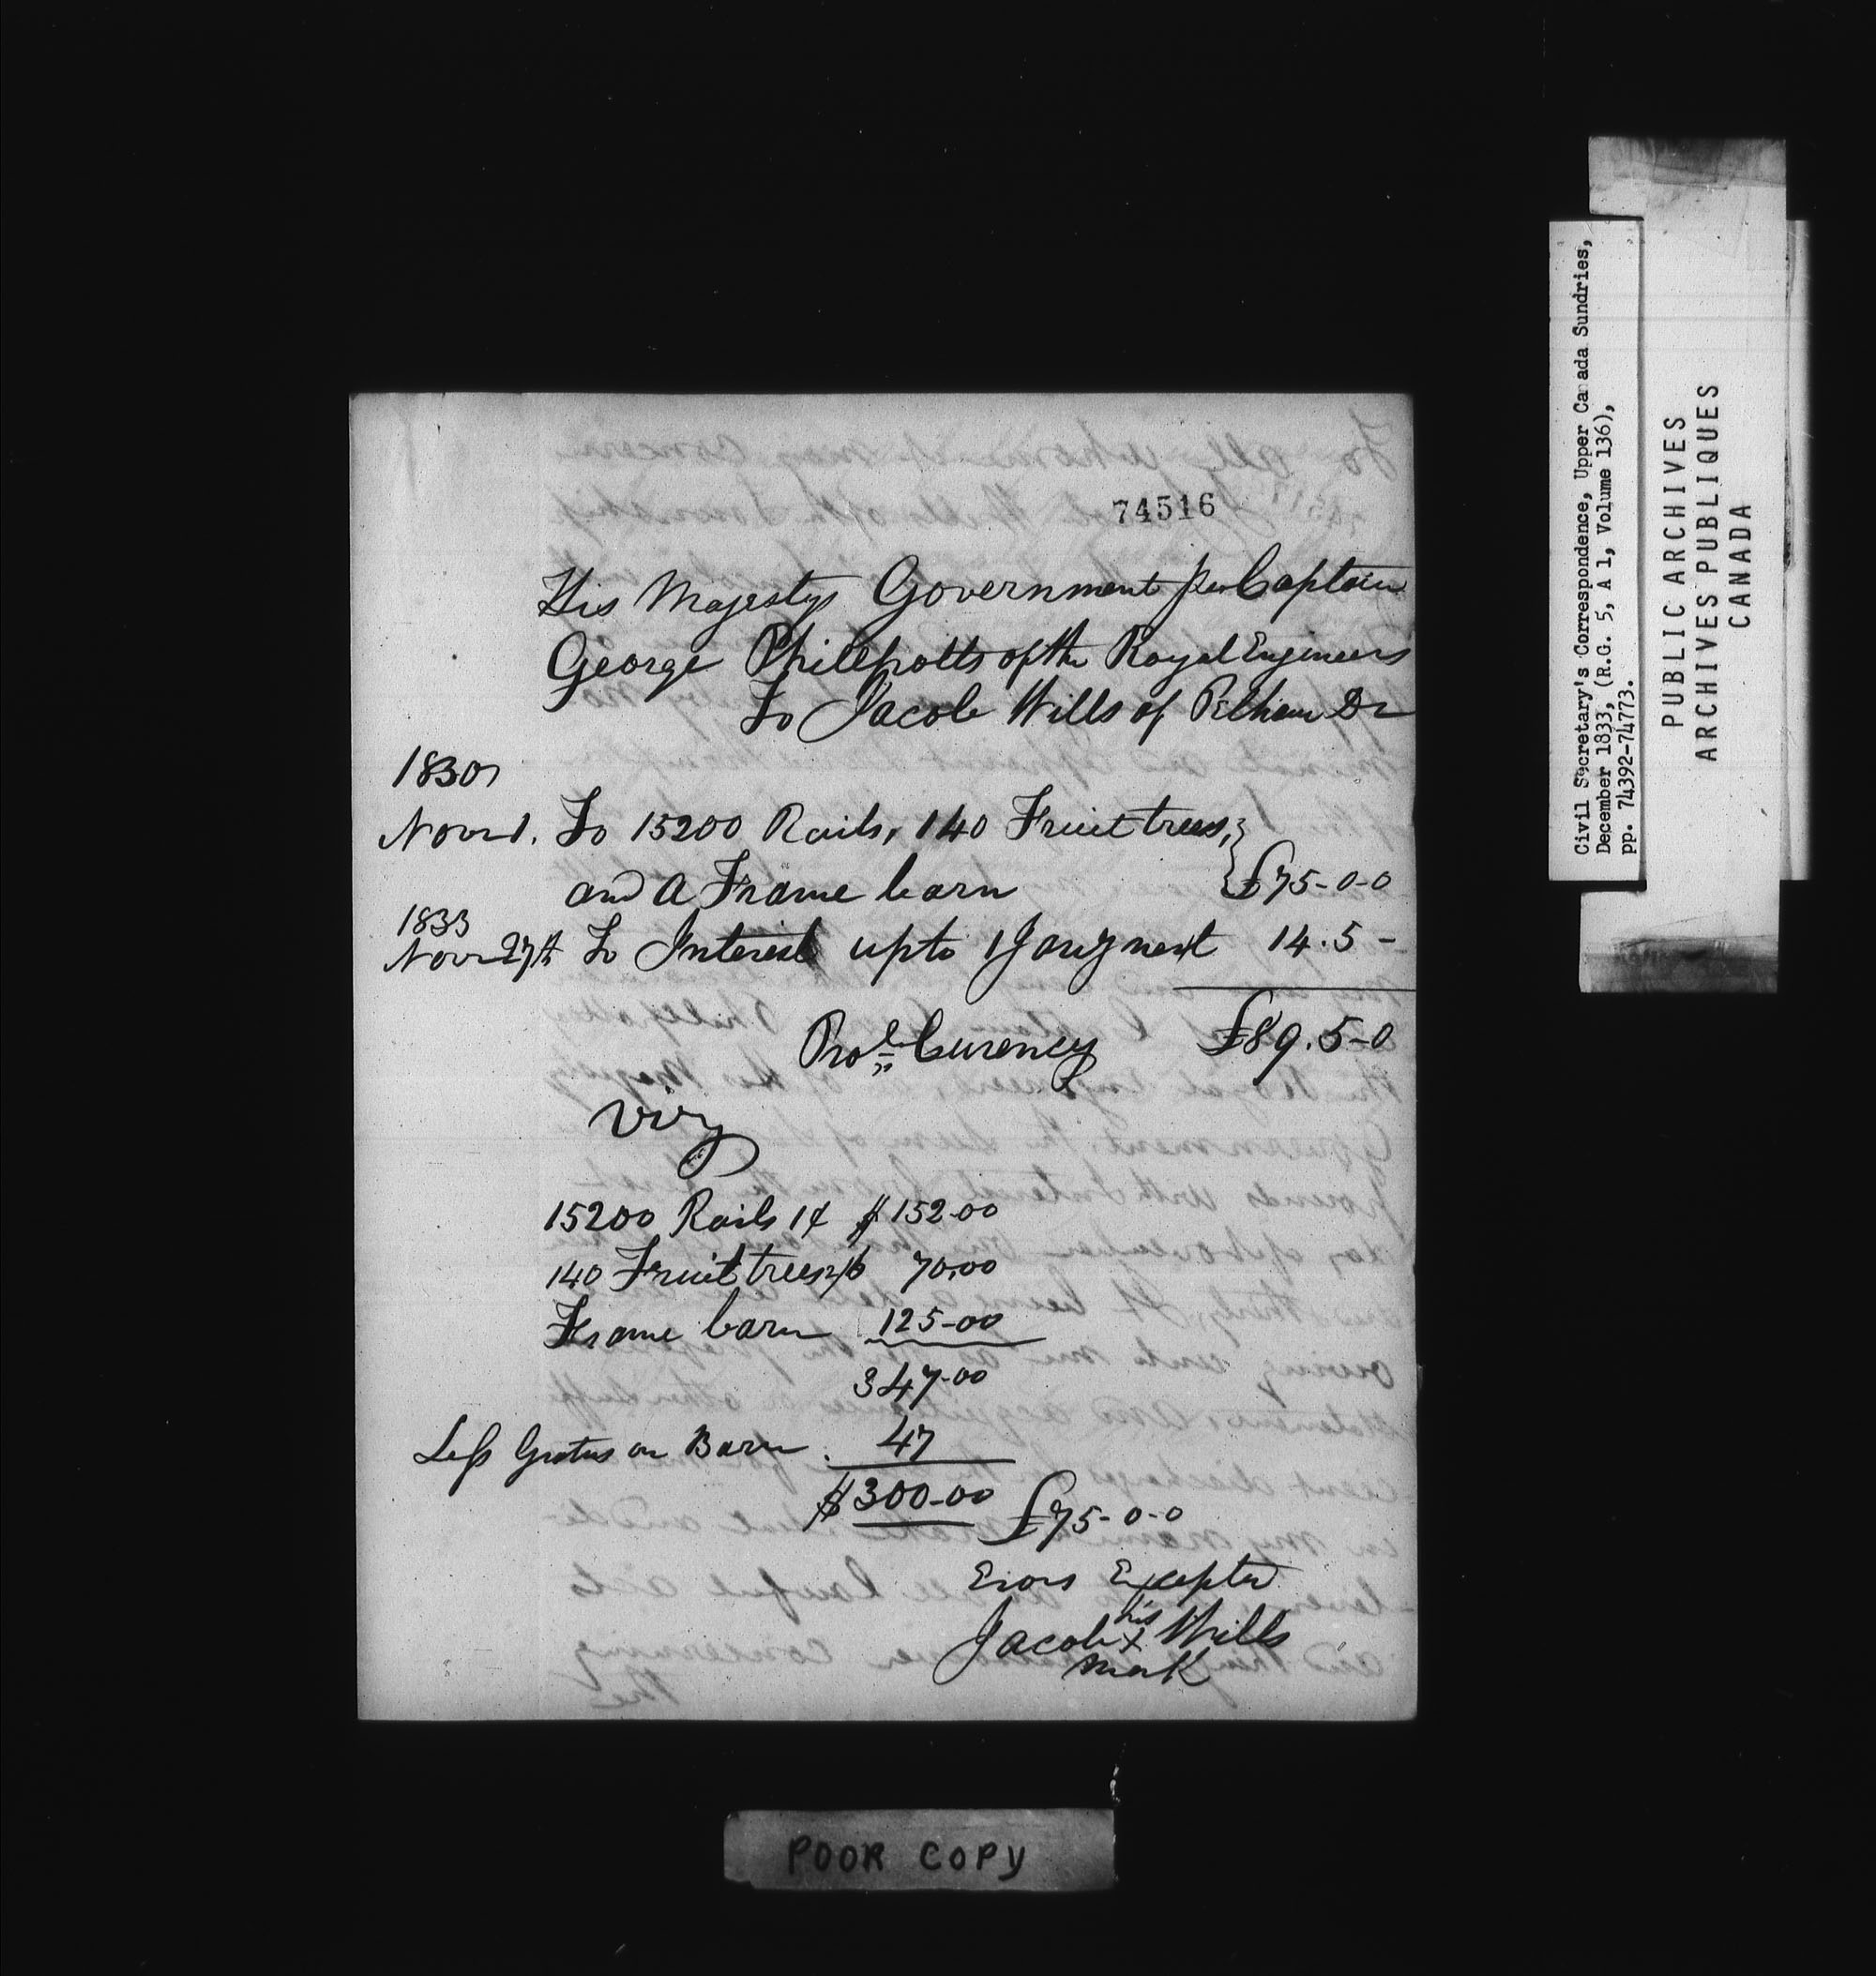 74516
His Majestys Government per Captain
George Phillpotts of the Royal Engineers
To Jacob Wills of Pelham Dr
1830
Novr 1. To 15200 Rails, 140 Fruit trees,
and a Frame barn £75-0-0
1833
Novr 27th To Interest up to 1 Jany next 14.5-
Prol. Curency £89.5-0
viz
15200 Rails 1¢ $152-00
140 Fruit trees 2/6 70,00
Frame barn 125-00
347-00
Less Gratus on Barn . 47
$300-00 £75-0-0
Erors Excepted
Jacob his x Wills
mark
POOR COPY
Civil Secretary's Correspondence, Upper Canada Sundries,
December 1833, (R.G. 5, A 1, Volume 136),
pp. 74392-74773.
PUBLIC ARCHIVES
ARCHIVES PUBLIQUES
CANADA